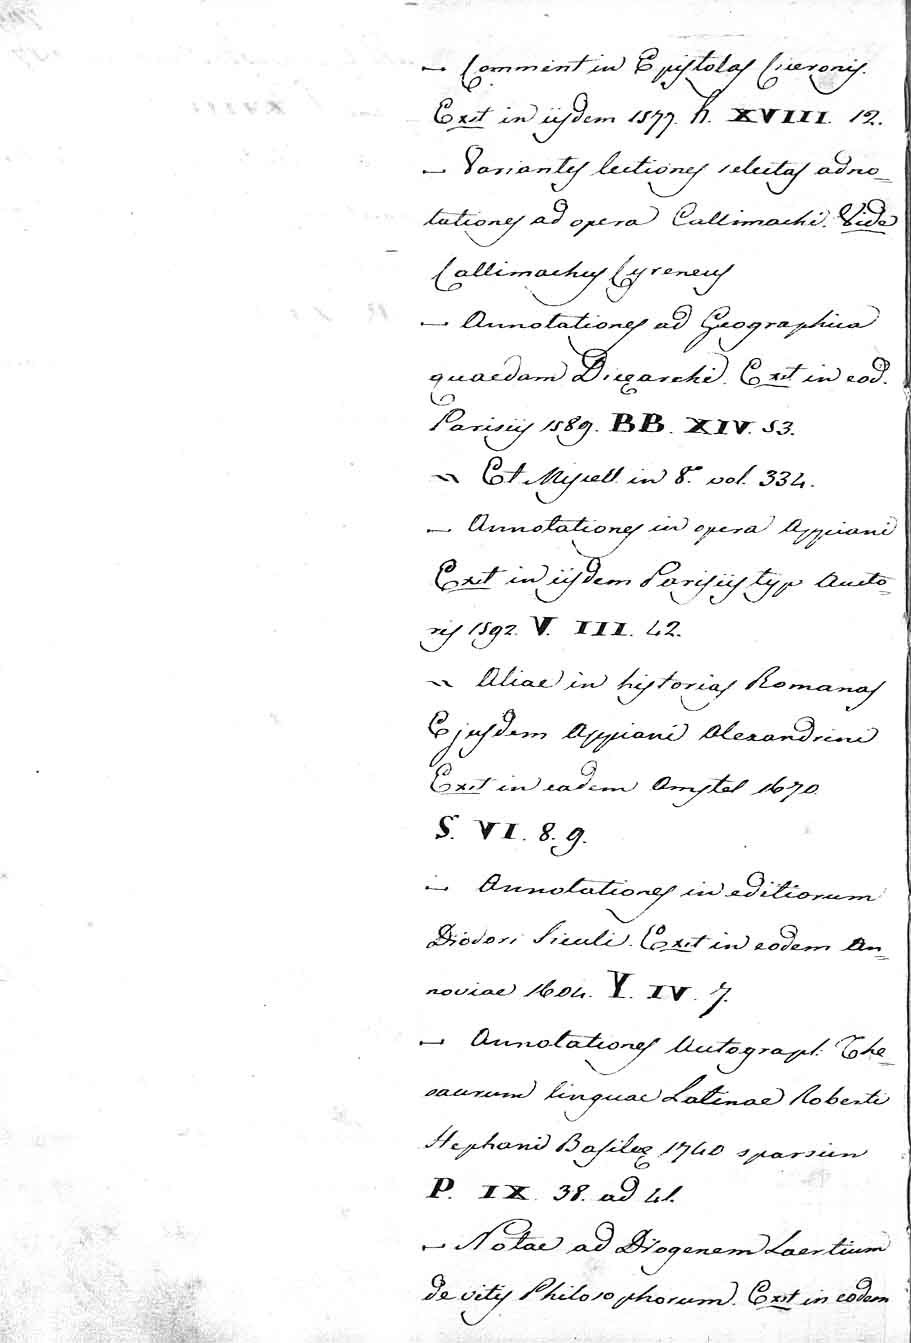 — Comment in Epistolas Ciceronis.
Exit in iisdem 1577. h. XVIII. 12.
— Variantes lectiones selectas adno=
tationes ad opera Callimachi. Vide
Callimachus Cyreneus
— Annotationes ad Geographica
quaedam Dicęarchi. Exit in eod.
Parisiis 1589. BB. XIV. 53.
~ Et Miscell. in 8.º vol. 334.
— Annotationes in opera Appiani
Exit in iisdem Parisiis typ Aucto=
ris 1592. V. III. 42.
~ Aliae in historias Romanas
Ejusdem Appiani Alexandrini
Exit in eadem Amstel 1670.
S. VI. 8. 9.
— Annotationes in editiorum
Diodori Siculi. Exit in eodem An=
noviae 1604. Y. IV. 7.
— Annotationes Autograph. The=
saurum linguae Latinae Roberti
Stephani Basileę 1740 sparsim
P. IX. 38. ad 41.
— Notae ad Diogenem Laertium
de vitis Philosophorum. Exit in eodem